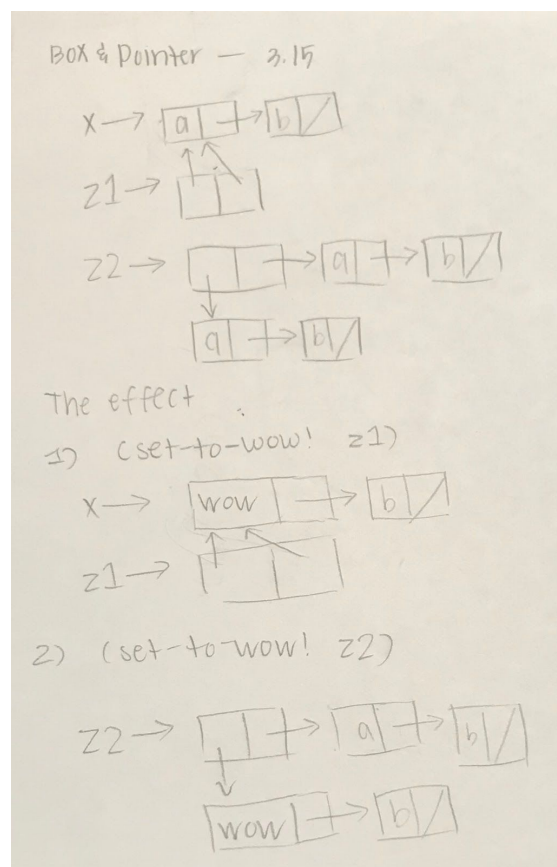 Box & Pointer — 3.15
x → a b
z1 →
z2 → a b
a b
The effect
1) (set-to-wow! z1)
x → wow b
z1 →
2) (set-to-wow! z2)
z2 → a b
wow b